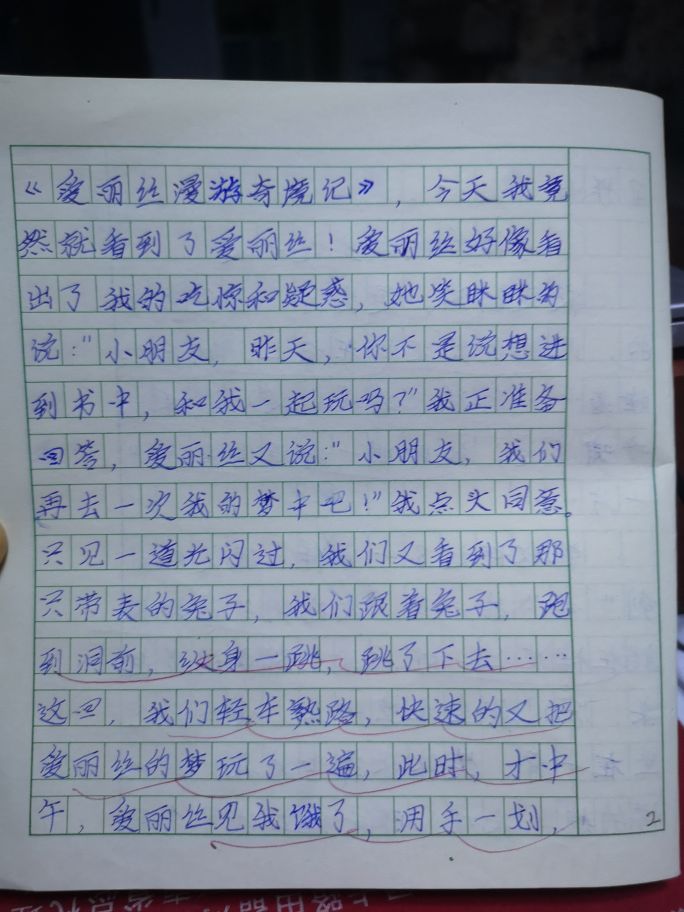 《爱丽丝漫游奇境记》，今天我竟
然就看到了爱丽丝！爱丽丝好像看
出了我的吃惊和疑惑，她笑眯眯的
说：“小朋友，昨天，你不是说想进
到书中，和我一起玩吗？”我正准备
回答，爱丽丝又说：“小朋友，我们
再去一次我的梦中吧！”我点头同意。
只见一道光闪过，我们又看到了那
只带表的兔子，我们跟着兔子，跑
到洞前，纵身一跳，跳了下去……
这回，我们轻车熟路，快速的又把
爱丽丝的梦玩了一遍，此时，才中
午，爱丽丝见我饿了，用手一划，
2